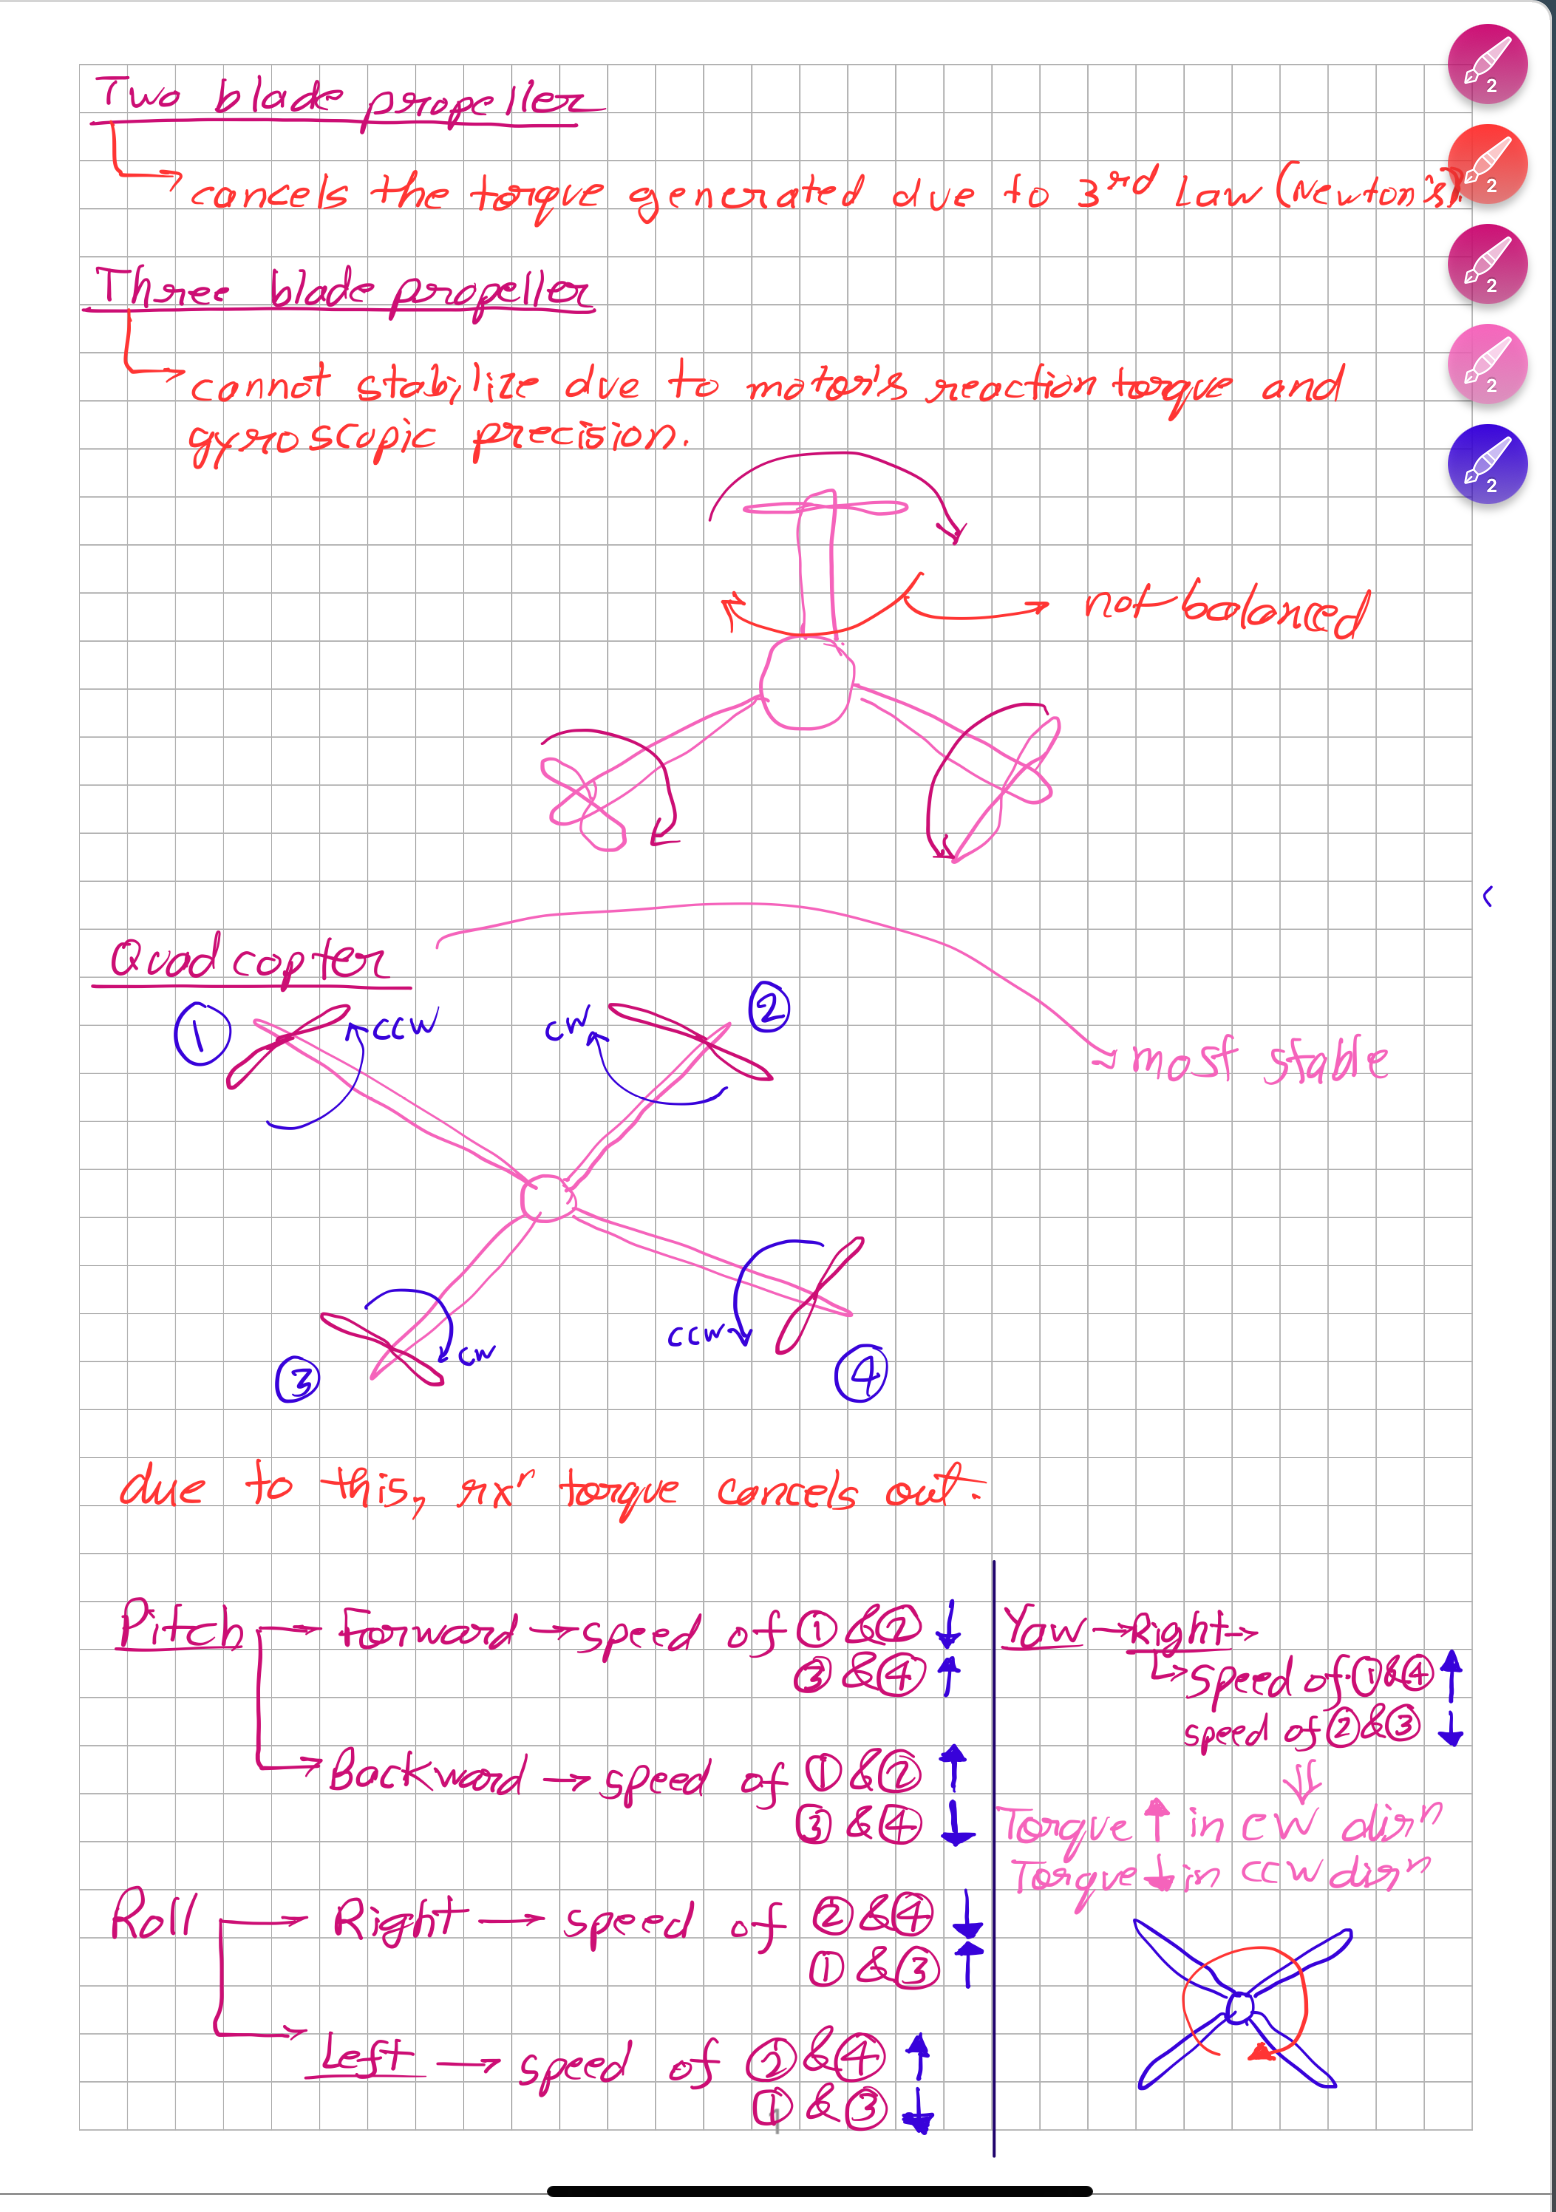 Two blade propeller
cancels the torque generated due to 3rd Law (Newton's).
Three blade propeller
cannot stabilize due to motor's reaction torque and
gyroscopic precision.
not balanced
Quad copter
① ccw
cw ②
most stable
③ cw
ccw ④
due to this, rxⁿ torque cancels out.
Pitch → Forward → speed of ① & ② ↓
③ & ④ ↑
→ Backward → speed of ① & ② ↑
③ & ④ ↓
Roll → Right → speed of ② & ④ ↓
① & ③ ↑
→ Left → speed of ② & ④ ↑
① & ③ ↓
Yaw → Right →
→ speed of ① & ④ ↑
speed of ② & ③ ↓
⇓
Torque ↑ in cw dirⁿ
Torque ↓ in ccw dirⁿ
2
2
2
2
2
1